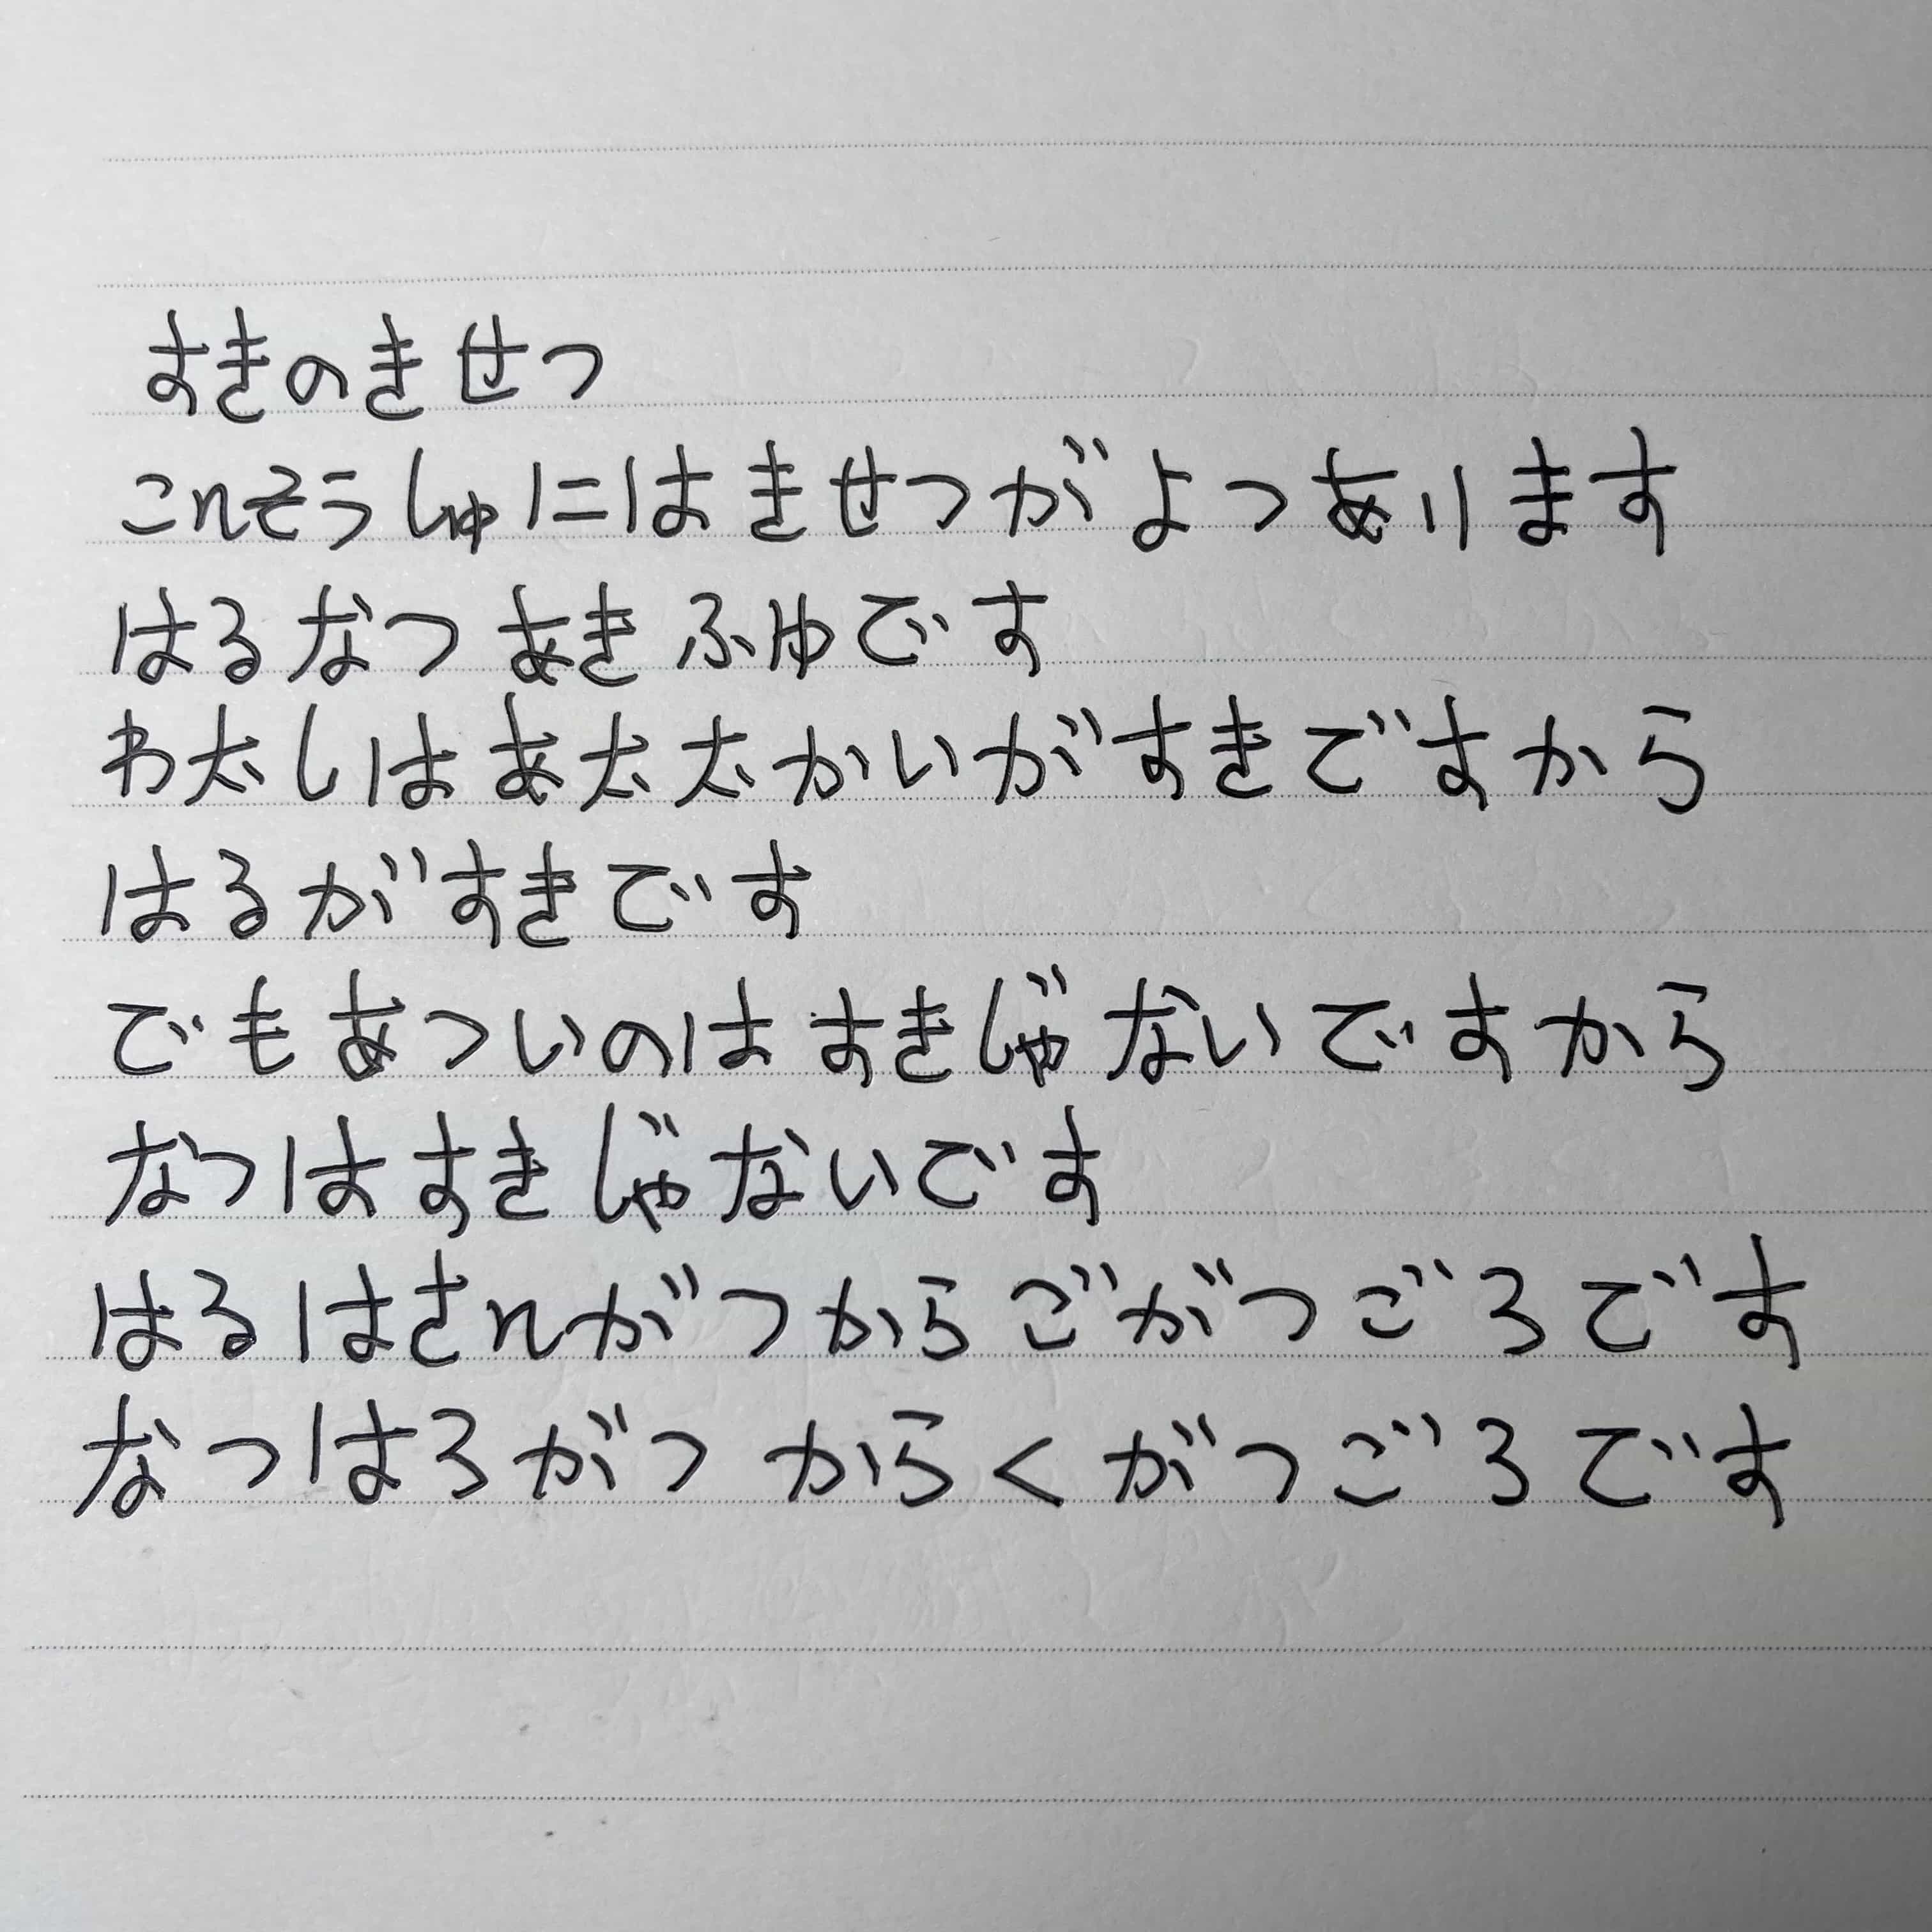 すきのきせつ
こんそうしゅにはきせつがよつあります
はるなつあきふゆです
わたしはあたたかいがすきですから
はるがすきです
でもあついのはすきじゃないですから
なつはすきじゃないです
はるはさんがつからごがつごろです
なつはろがつからくがつごろです